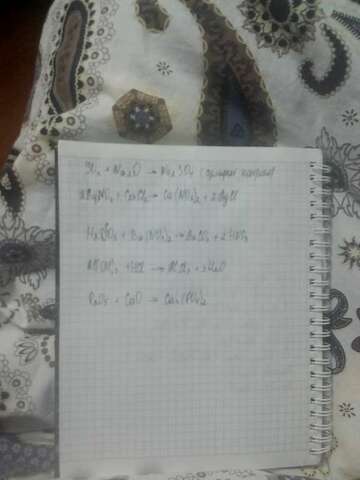 SO₃ + Na₂O → Na₂SO₄ (сульфат натрия)
2AgNO₃ + CaCl₂ → Ca(NO₃)₂ + 2AgCl
H₂SO₄ + Ba(NO₃)₂ → BaSO₄ + 2HNO₃
Al(OH)₃ + HCl → AlCl₃ + H₂O
P₂O₅ + CaO → Ca₃(PO₄)₂